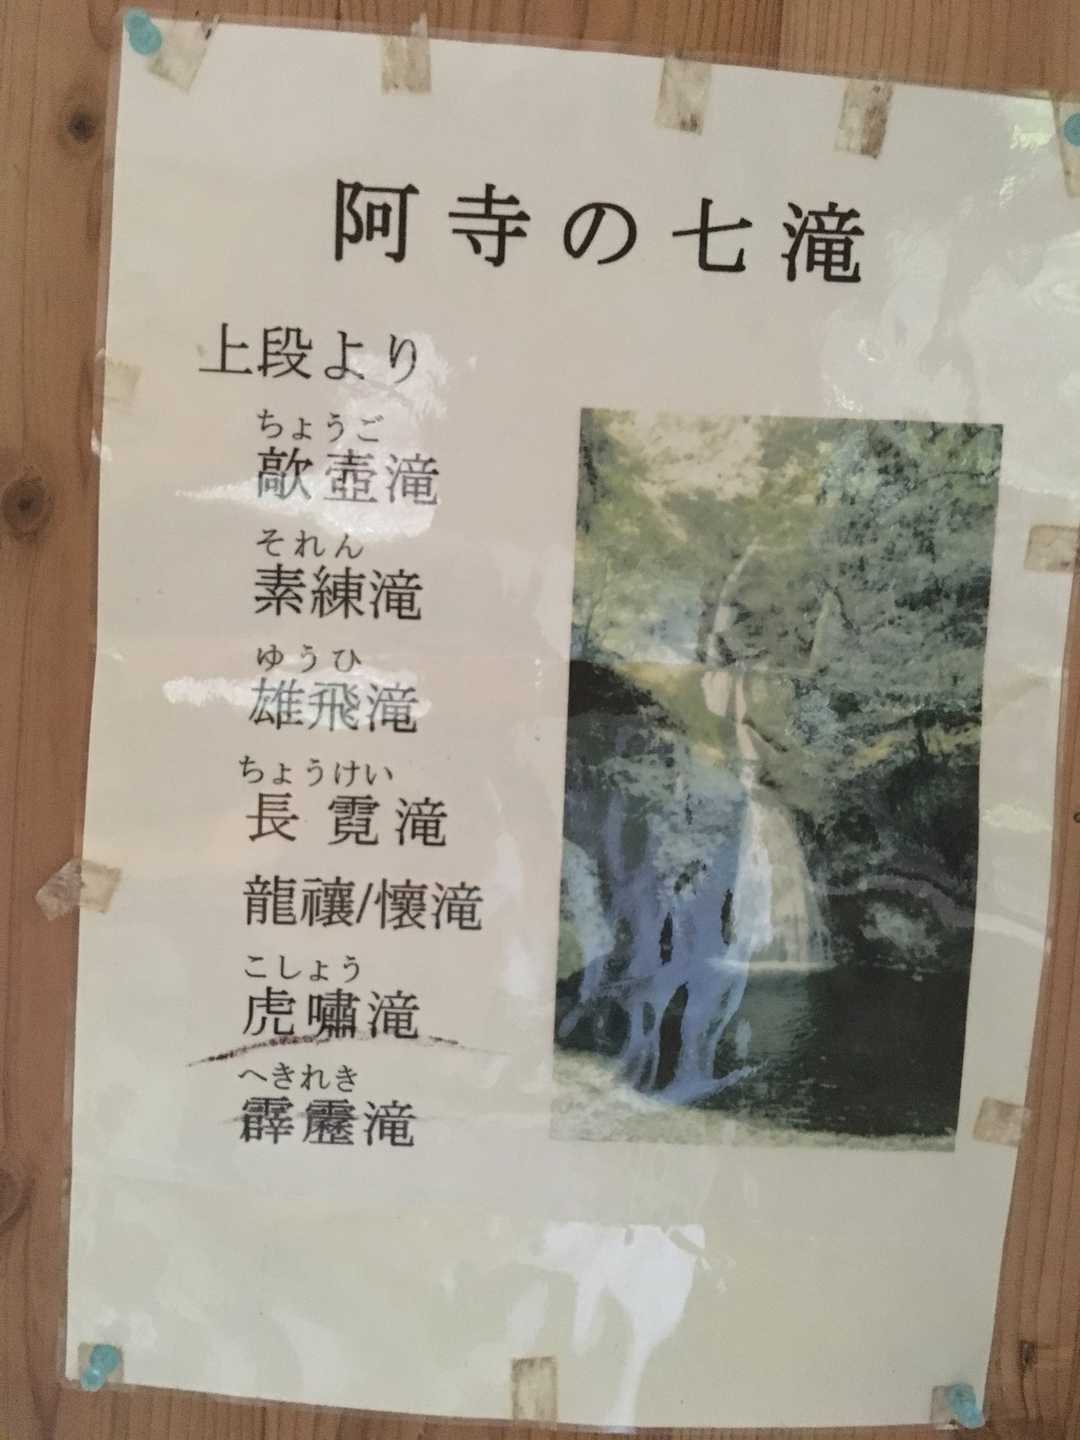 阿寺の七滝
上段より
ちょうご
敞壺滝
それん
素練滝
ゆうひ
雄飛滝
ちょうけい
長霓滝
龍禳/懐滝
こしょう
虎嘯滝
へきれき
霹靂滝